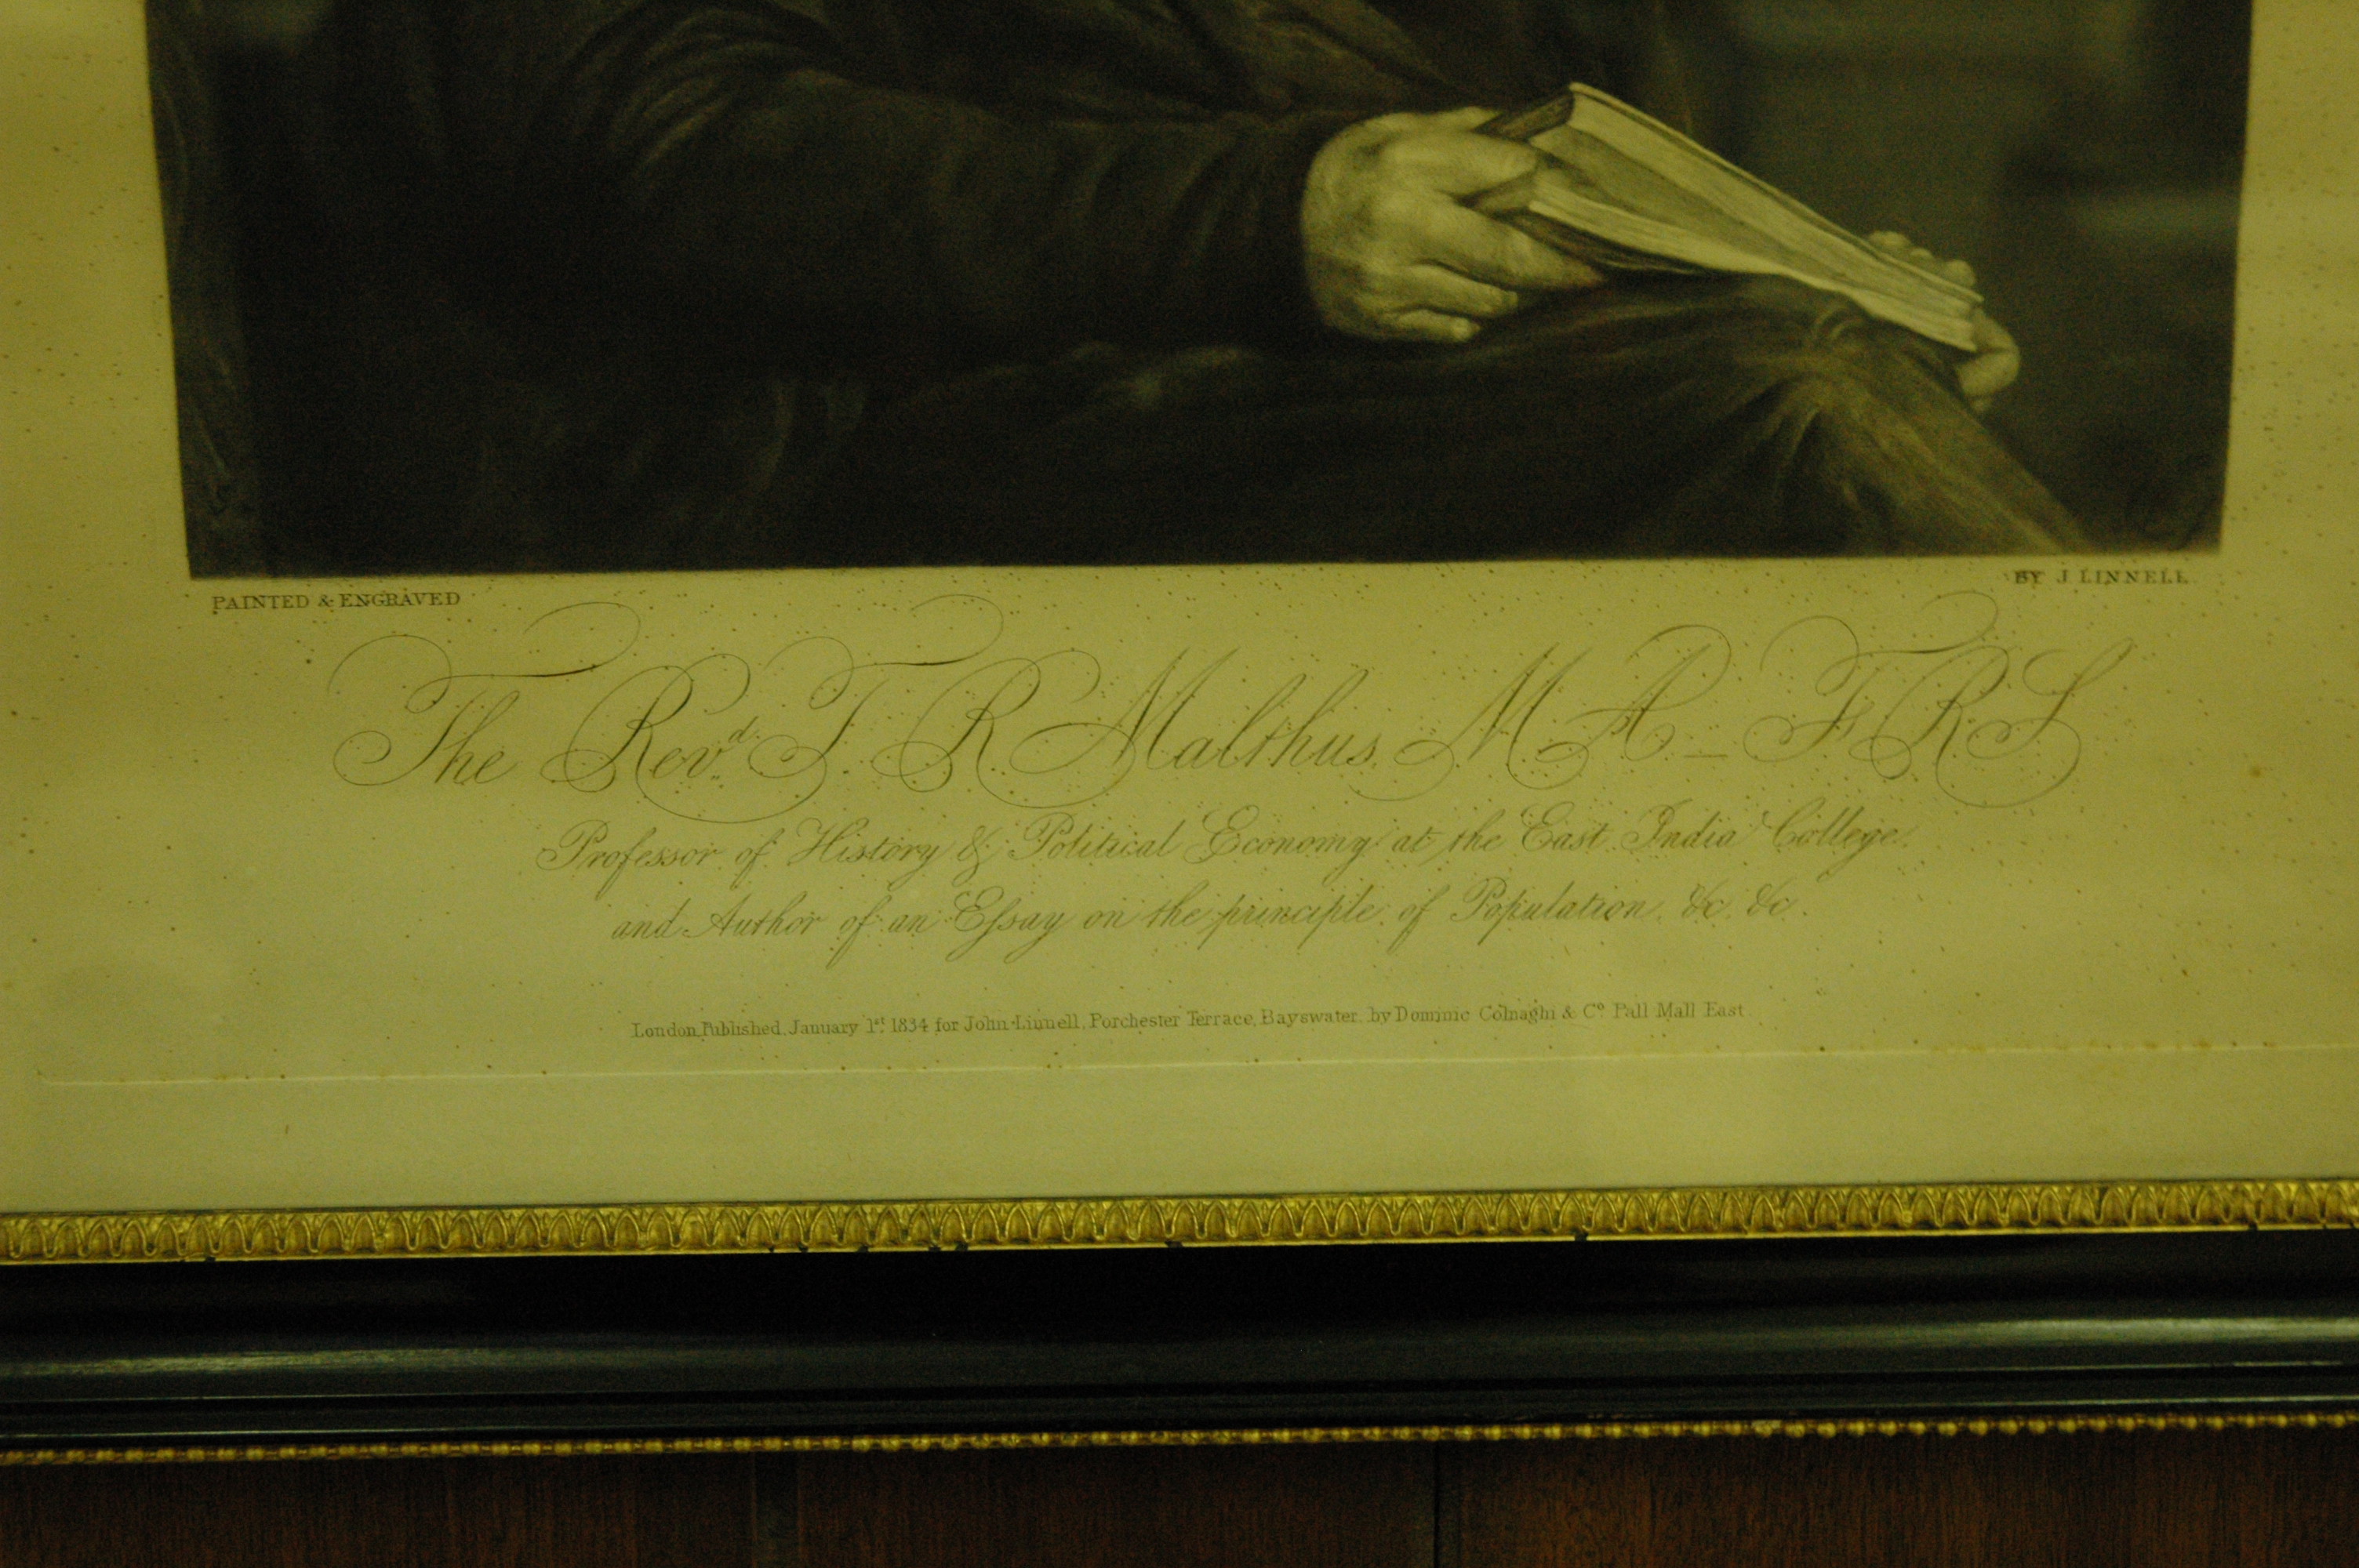 PAINTED & ENGRAVED
BY J LINNELL
The Revd. T. R. Malthus. M A _ F R S
Professor of History & Political Economy at the East India College.
and Author of an Eſsay on the principle of Population. &c. &c.
London, Published, January 1st 1834 for John Linnell, Porchester Terrace, Bayswater, by Dominic Colnaghi & Co. Pall Mall East.